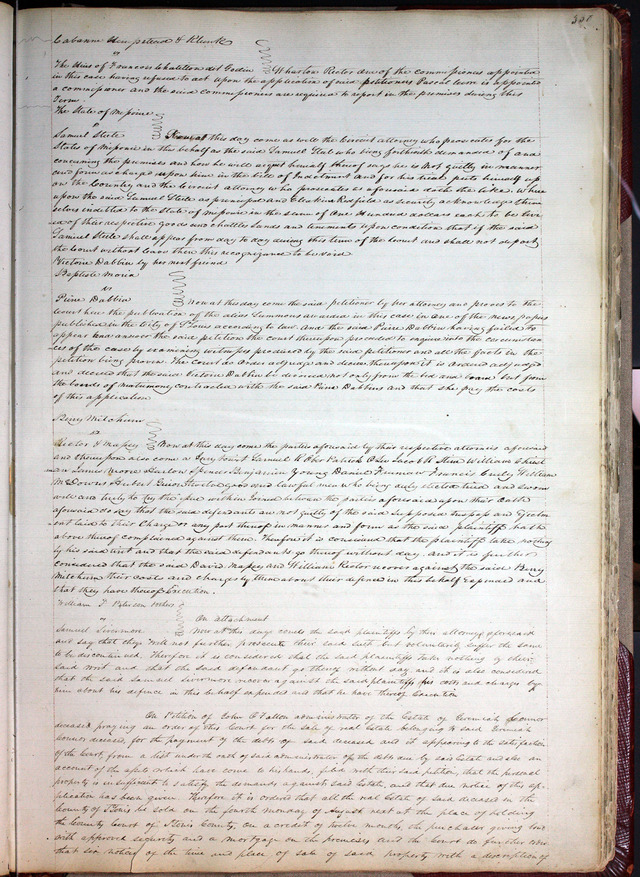 331
Cabanne Hempstead & Klunk
vs
The Heirs of Francois Chatillon dit Godin Wharton Rector One of the commissioners appointed
in this case having refused to act upon the application of said petitioner Pascal Cerre is appointed
a commissioner and the said commissioners are required to report in the premises during this
Term
The State of Missouri
vs
Samuel Steele Now at this day come as well the Circuit attorney who prosecutes for the
State of Missouri in this behalf as the said Samuel Steele who being forthwith demanded of and
concerning the premises and how he will acquit himself thereof says he is Not guilty in manner
and form as charged upon him in the bill of Indictment and for his trial puts himself up
on the Country and the Circuit attorney who prosecutes as aforesaid doth the like. Where
upon the said Samuel Steele as principal and as security acknowledge them
selves indebted to the State of Missouri in the sum of One Hundred dollars each to be levi
ed of their respective goods and chattles Lands and tenements upon condition that if the said
Samuel Steele shall appear from day to day during this term of the Court and shall not depart
the Court without leave then this recognizance to be void
Victoire Dabbin by her next friend
Baptiste Moria
vs
Piere Dabbin Now at this day come the said petitioner by her attorney and proves to the
Court here the publication of the alias Summons awarded in this case in one of the news papers
published in the City of St Louis according to law and the said Piere Dabbin having failed to
appear and answer the said petition the court thereupon proceeded to enquire into the circumstan
ces of the case by examining witnesses produced by the said petitioner and all the facts in the
petition being proven The Court do order adjudge and decree thereupon it is ordered adjudged
and decreed that the said Victoire Dabbin be divorced not only from the bed and board but from
the bonds of matrimony contracted with the said Piere Dabbins and that she pay the costs
of this application
Berry Mitchum
vs
Rector & Massey Now at this day come the parties aforesaid by their respective attornies aforesaid
and thereupon also come a Jury to wit Samuel Patrick Jacob William
Samuel Moore Spencer Benjamin Young Daniel Francis William
McDowers Herbert good and lawful men who being duly elected tried and sworn
well and truly to try the issue within Joined between the parties aforesaid upon their Oath
aforesaid do say that the said defendants are not guilty of the said supposed trespass and Ejectm
ent laid to their Charge or any part thereof in manner and form as the said plaintiff hath
above thereof complained against them. Therefore it is considered that the plaintiff take nothing
by his said writ and that the said defendants go thereof without day. and it is further
considered that the said David Massey and William Rector recover against the said Berry
Mitchum their costs and charges by them about their defence in this behalf expended and
that they have thereof Execution.
William T others
vs On attachment
Samuel Livermore Now at this day comes the said plaintiffs by their attorney aforesaid
and say that they will not further prosecute their said suit but voluntarily suffer the same
to be discontinued. Therefore it is considered that the said plaintiffs take nothing by their
said writ and that the said defendant go thereof without day and it is also considered
that the said Samuel Livermore recover against the said plaintiffs his costs and charges by
him about his defence in this behalf expended and that he have thereof Execution
On Petition of John O'Fallon administrator of the Estate of Jeremiah Connor
deceased, praying an order of this Court for the sale of real Estate belonging to said Jeremiah
Connor deceased, for the payment of the debts of said deceased and it appearing to the satisfaction
of the Court, from a list under the oath of said administrator of the debts due by said Estate and also an
account of the assets which have come to his hands, filed with their said petition, that the personal
property is insufficient to satisfy the demands against said Estate, and that due notice of this ap
plication has been given. Therefore it is ordered that all the real estate of said deceased in the
County of St Louis be sold on the fourth Monday of August next at the place of holding
the County Court of St Louis County, on a credit of twelve months, the purchaser giving bond
with approved security and a mortgage on the premises and the Court do further order
that six notices of the time and place of sale of said property with a description of